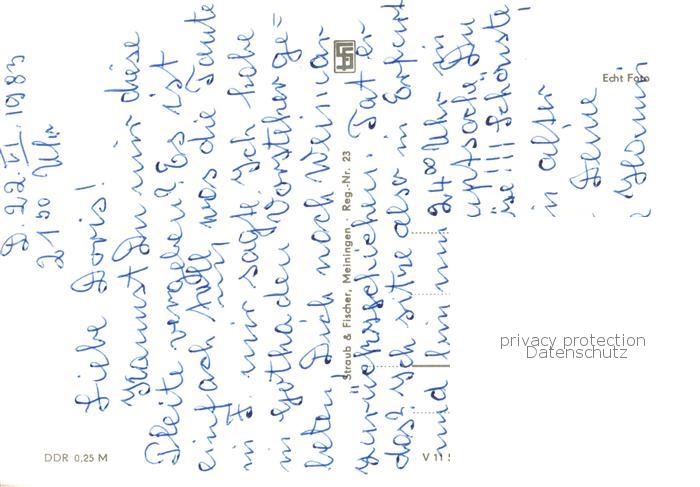 D. 22. VI. 1983
21⁰⁰ Uhr
Liebe Doris!
Kannst Du mir diese
Pleite vergeben? Es ist
einfach was die Tante
in F. mir sagte. Ich habe
in Gotha den Vorsteher ge=
beten Dich nach Weimar
zurückzuschicken. Tat er
das? Ich sitze also in Erfurt
und bin um 24⁰⁰ Uhr in
!!! Schönste,
in alter
Deine
Straub & Fischer, Meiningen · Reg.-Nr. 23
Echt Foto
DDR 0,25 M
V 11
privacy protection
Datenschutz